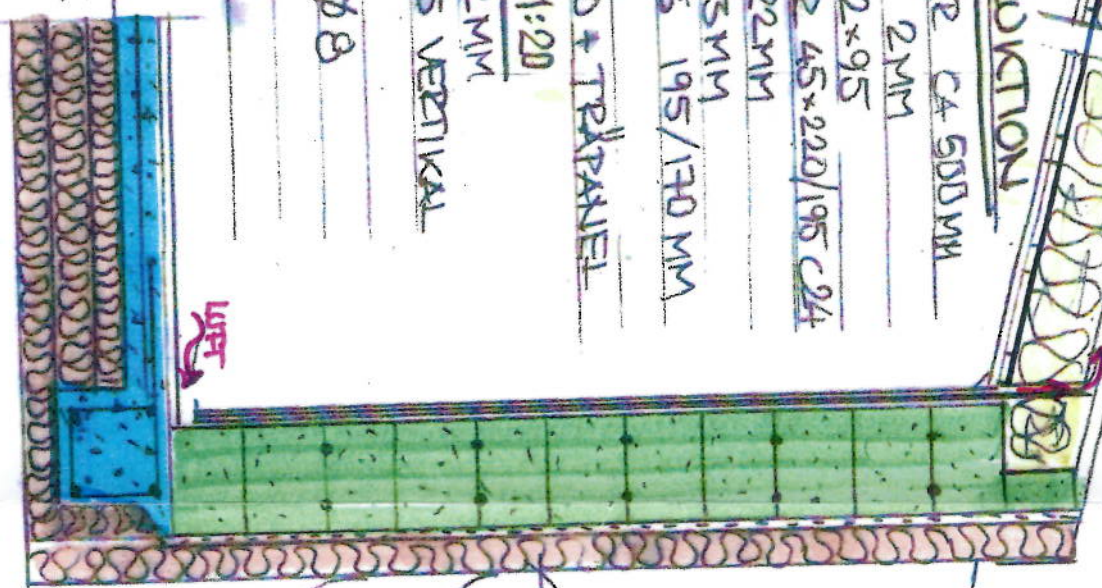 UKTION
R CA 500 MM
2MM
2x95
R 45x220/195 C24
22MM
5MM
195/170 MM
+ TRÄPANEL
1:20
MM
VERTIKAL
LUFT